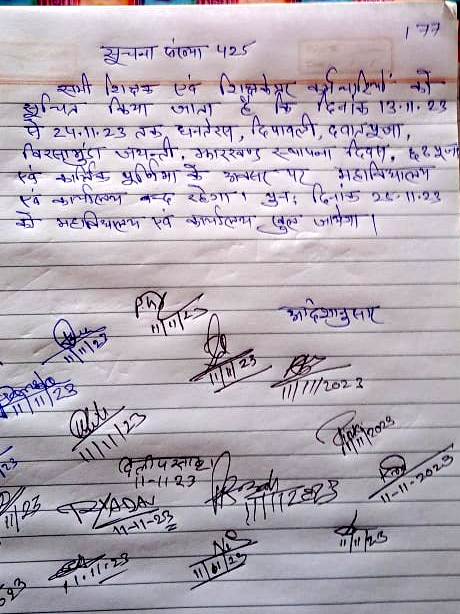 177
सूचना संख्या 425
सभी शिक्षक एवं शिक्षकेत्तर कर्मचारियों को
सूचित किया जाता है कि दिनांक 13.11.23
से 24.11.23 तक धनतेरस, दिपावली, दवातपूजा,
बिरसामुंडा जयन्ती, झारखण्ड स्थापना दिवस, छठपूजा
एवं कार्तिक पूर्णिमा के अवसर पर महाविद्यालय
एवं कार्यालय बन्द रहेगा। पुनः दिनांक 25.11.23
को महाविद्यालय एवं कार्यालय खुल जायेगा।
आदेशानुसार
11/11/23
11/11/23
11/11/23
11/11/2023
11/11/23
11/11/23
11/11/2023
दिलीप साह
11-11-23
11-11-2023
11/11/2023
11/23
RYADAV
11-11-23
11/11/23
11.11.23
11/01/23